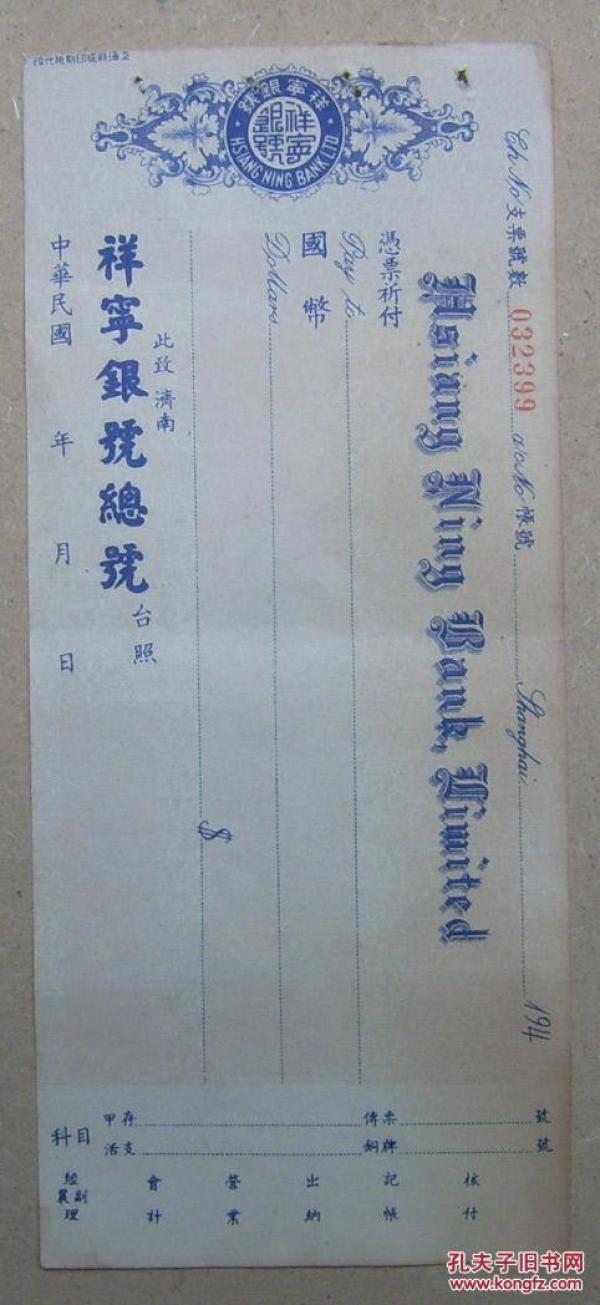 祥寧銀號
祥寧銀號
HSIANG NING BANK, LTD
Ch No 支票號數 032399 a/c No 帳號 Shanghai 194
Hsiang Ning Bank, Limited
憑票祈付
Pay to
國幣
Dollars
$
此致 濟南
祥寧銀號總號 台照
中華民國 年 月 日
科目
甲存 傳票 號
活支 銅牌 號
經副襄理 會計 營業 出納 記帳 核付
孔夫子旧书网
www.kongfz.com